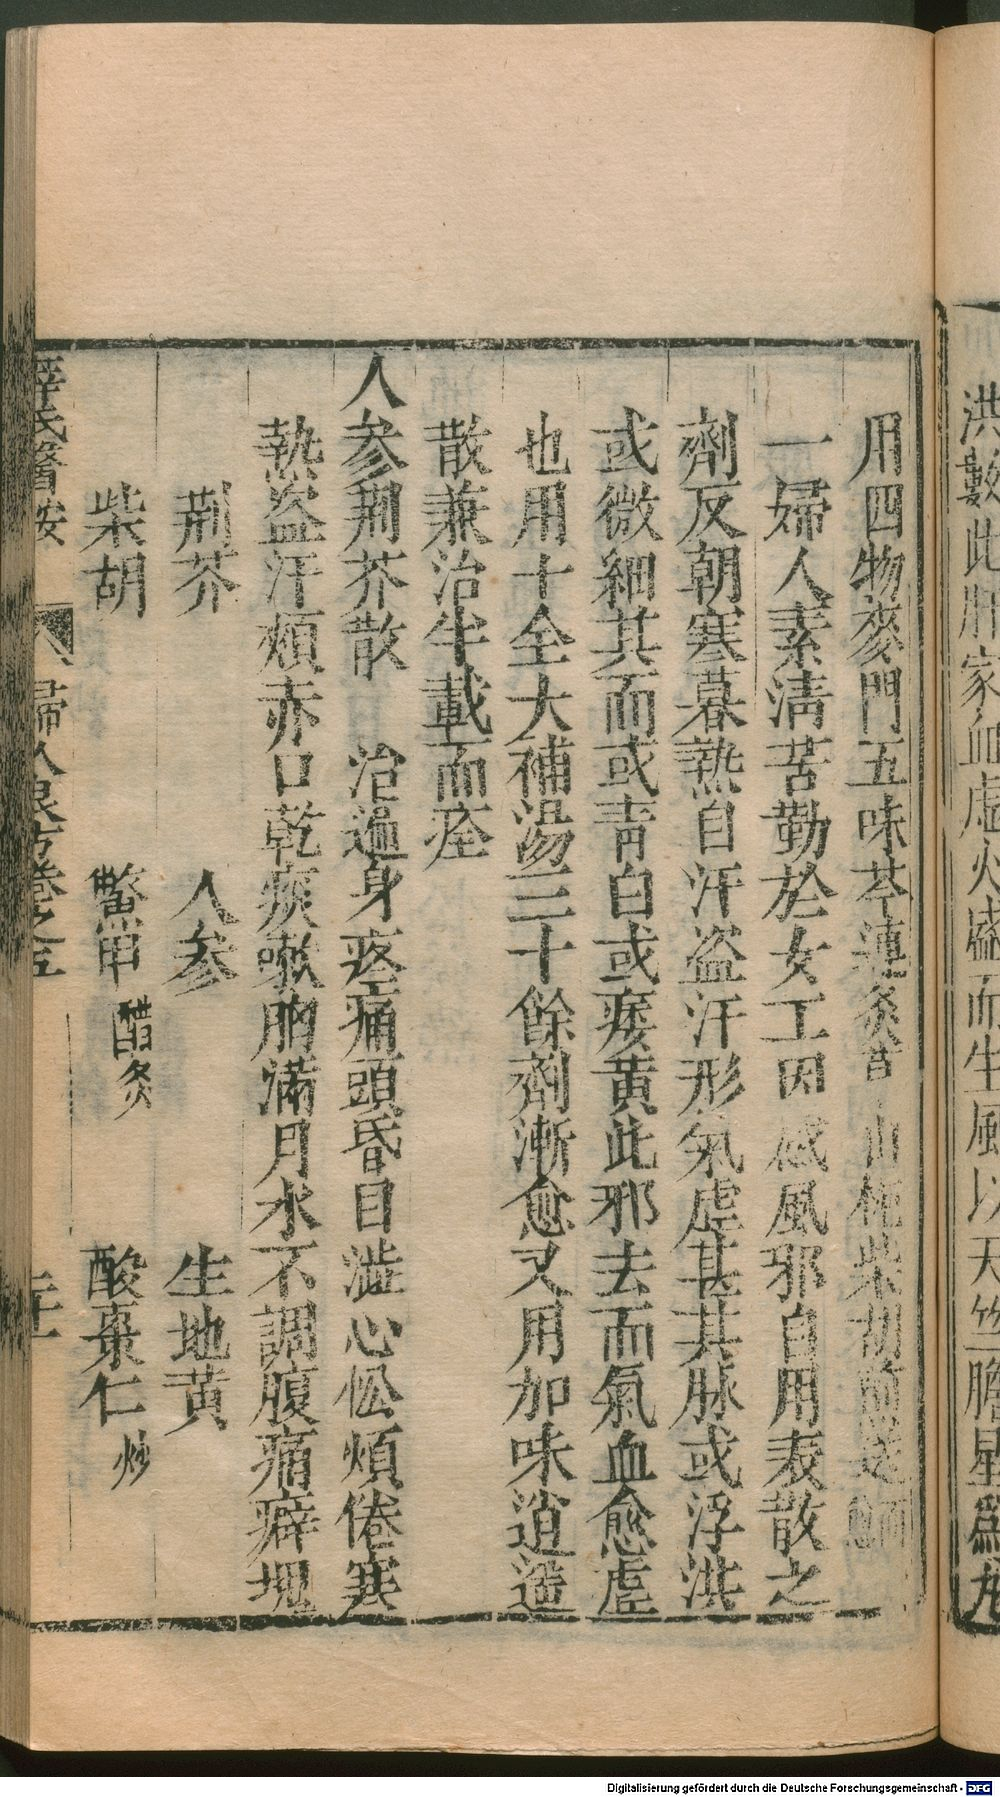 洪數此肝家血虛火盛而生風以天竺膽星爲丸
用四物麥門五味芩連炙草山梔柴胡煎送
一婦人素清苦勤於女工因感風邪自用表散之
劑反朝寒暮熱自汗盜汗形氣虛甚其脉或浮洪
或微細其而或靑白或痿黄此邪去而氣血愈虛
也用十全大補湯三十餘劑漸愈又用加味逍遥
散兼治半載而痊
人參荆芥散 治遍身疼痛頭昏目澁心忪煩倦寒
熱盜汗頰赤口乾痰嗽胸滿月水不調腹痛癖塊
荆芥 人參 生地黄
柴胡 鱉甲醋炙 酸棗仁炒
薛氏醫按 婦人良方卷之五 二十一
Digitalisierung gefördert durch die Deutsche Forschungsgemeinschaft - DFG